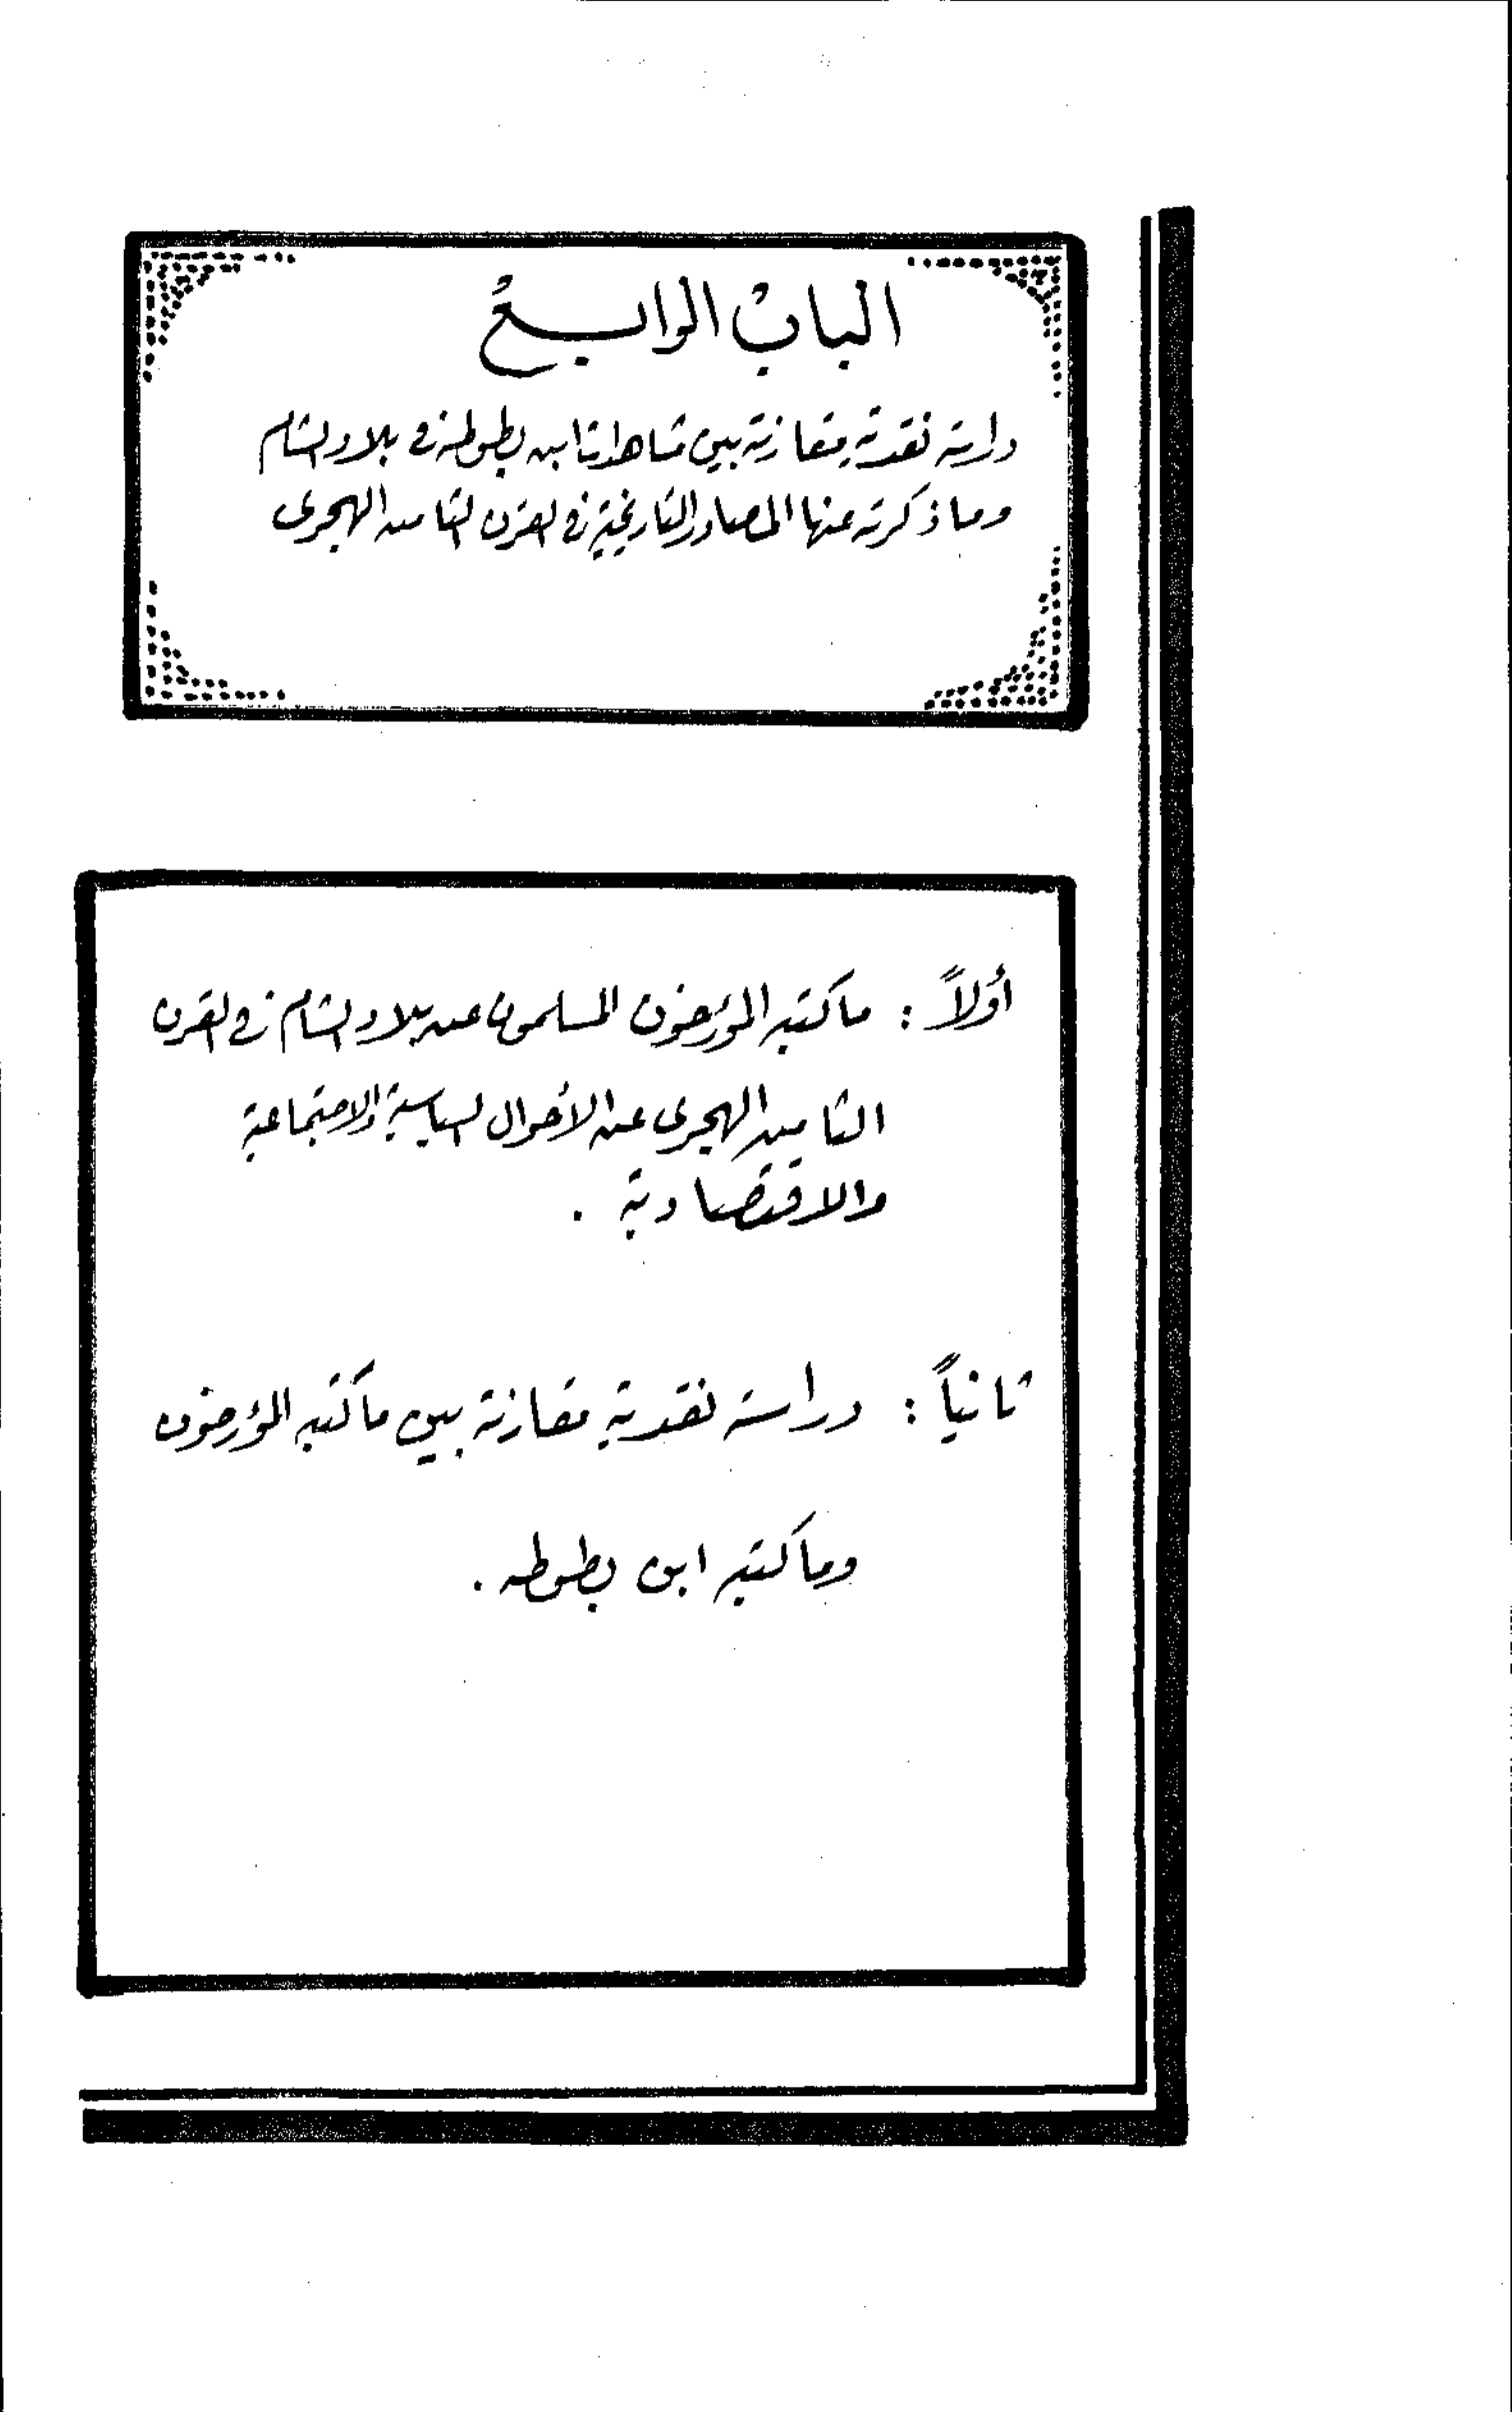 الباب الرابع
دراسة نقدية مقارنة بين مشاهدات ابن بطوطة في بلاد الشام
وما ذكرته عنها المصادر التاريخية في القرن الثامن الهجرى
أولاً : ما كتبه المؤرخون المسلمون عن بلاد الشام في القرن
الثامن الهجرى عن الأحوال السياسية والاجتماعية
والاقتصادية .
ثانياً : دراسة نقدية مقارنة بين ما كتبه المؤرخون
وما كتبه ابن بطوطه .